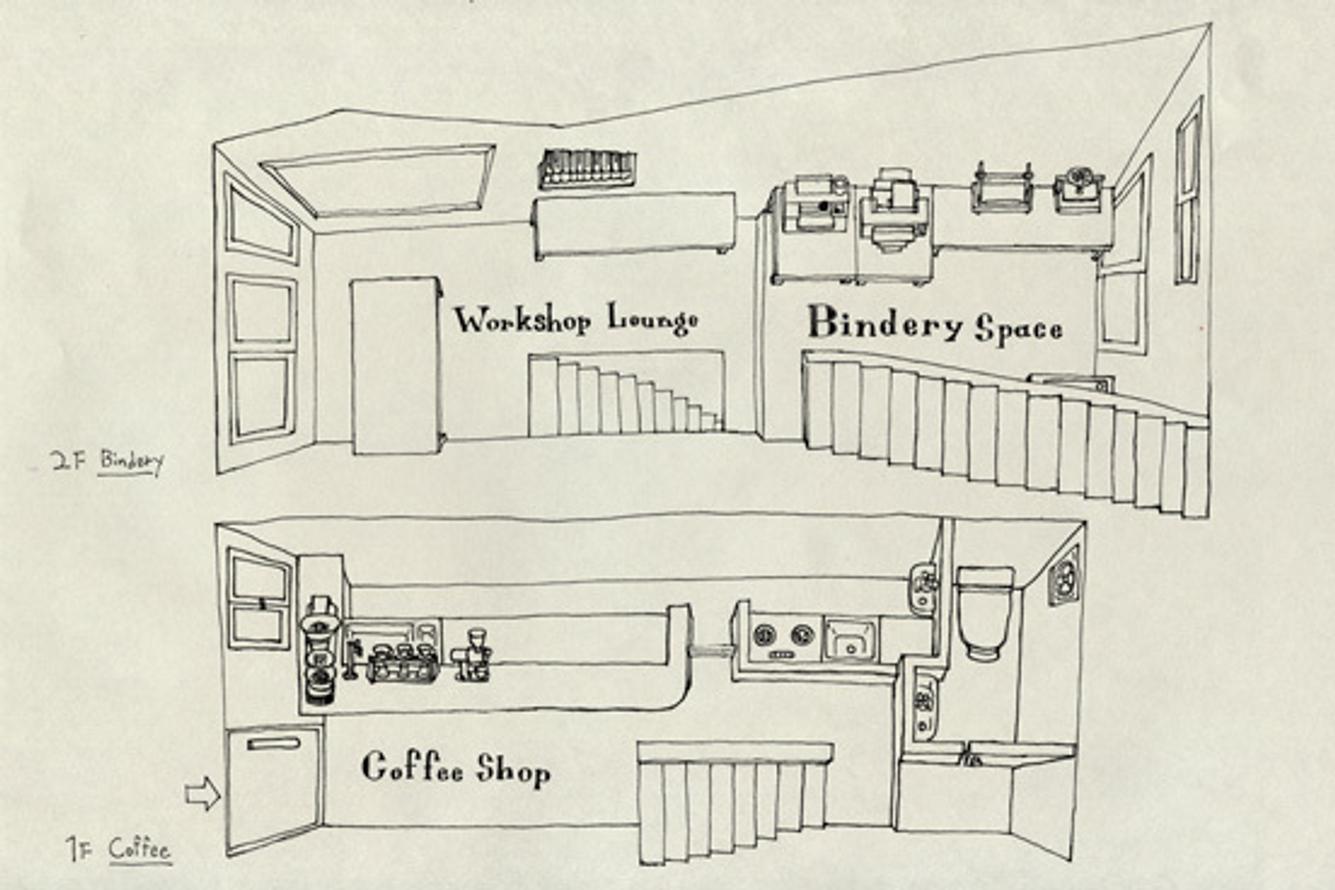 Workshop Lounge
Bindery Space
2F Bindery
Coffee Shop
1F Coffee